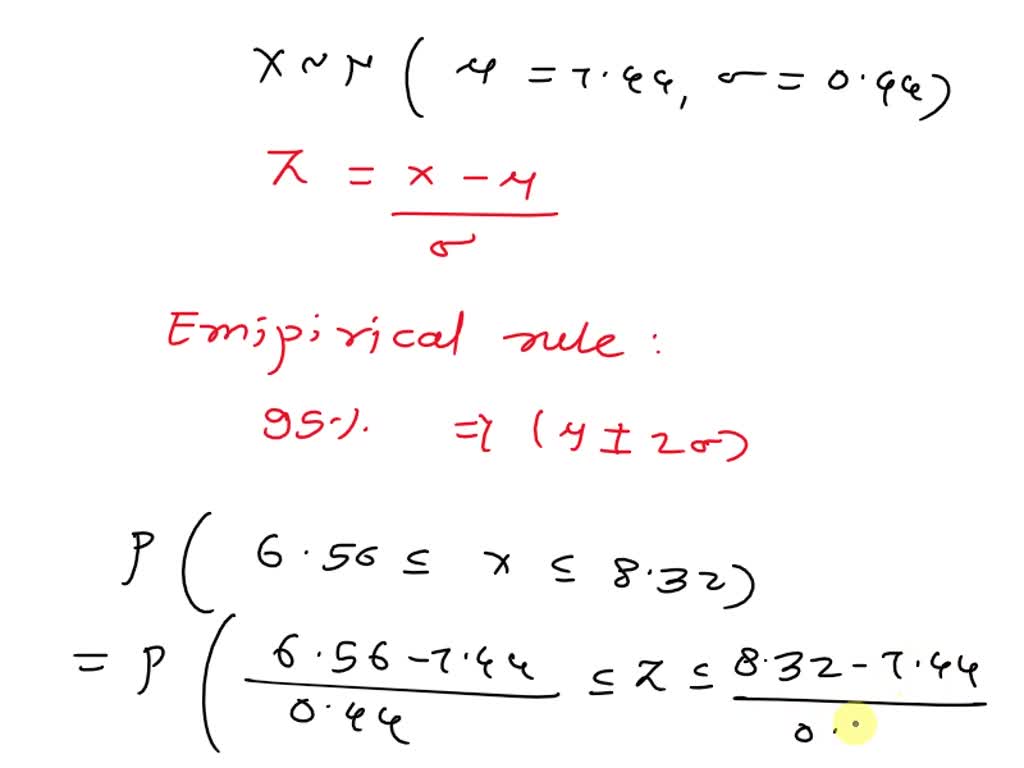 X ~ N ( μ = 7.44, σ = 0.44)
Z = x - μ
σ
Emipirical rule :
95% ⇒ ( μ ± 2σ)
P ( 6.56 ≤ x ≤ 8.32)
= P ( 6.56 - 7.44 ≤ Z ≤ 8.32 - 7.44
0.44 0.